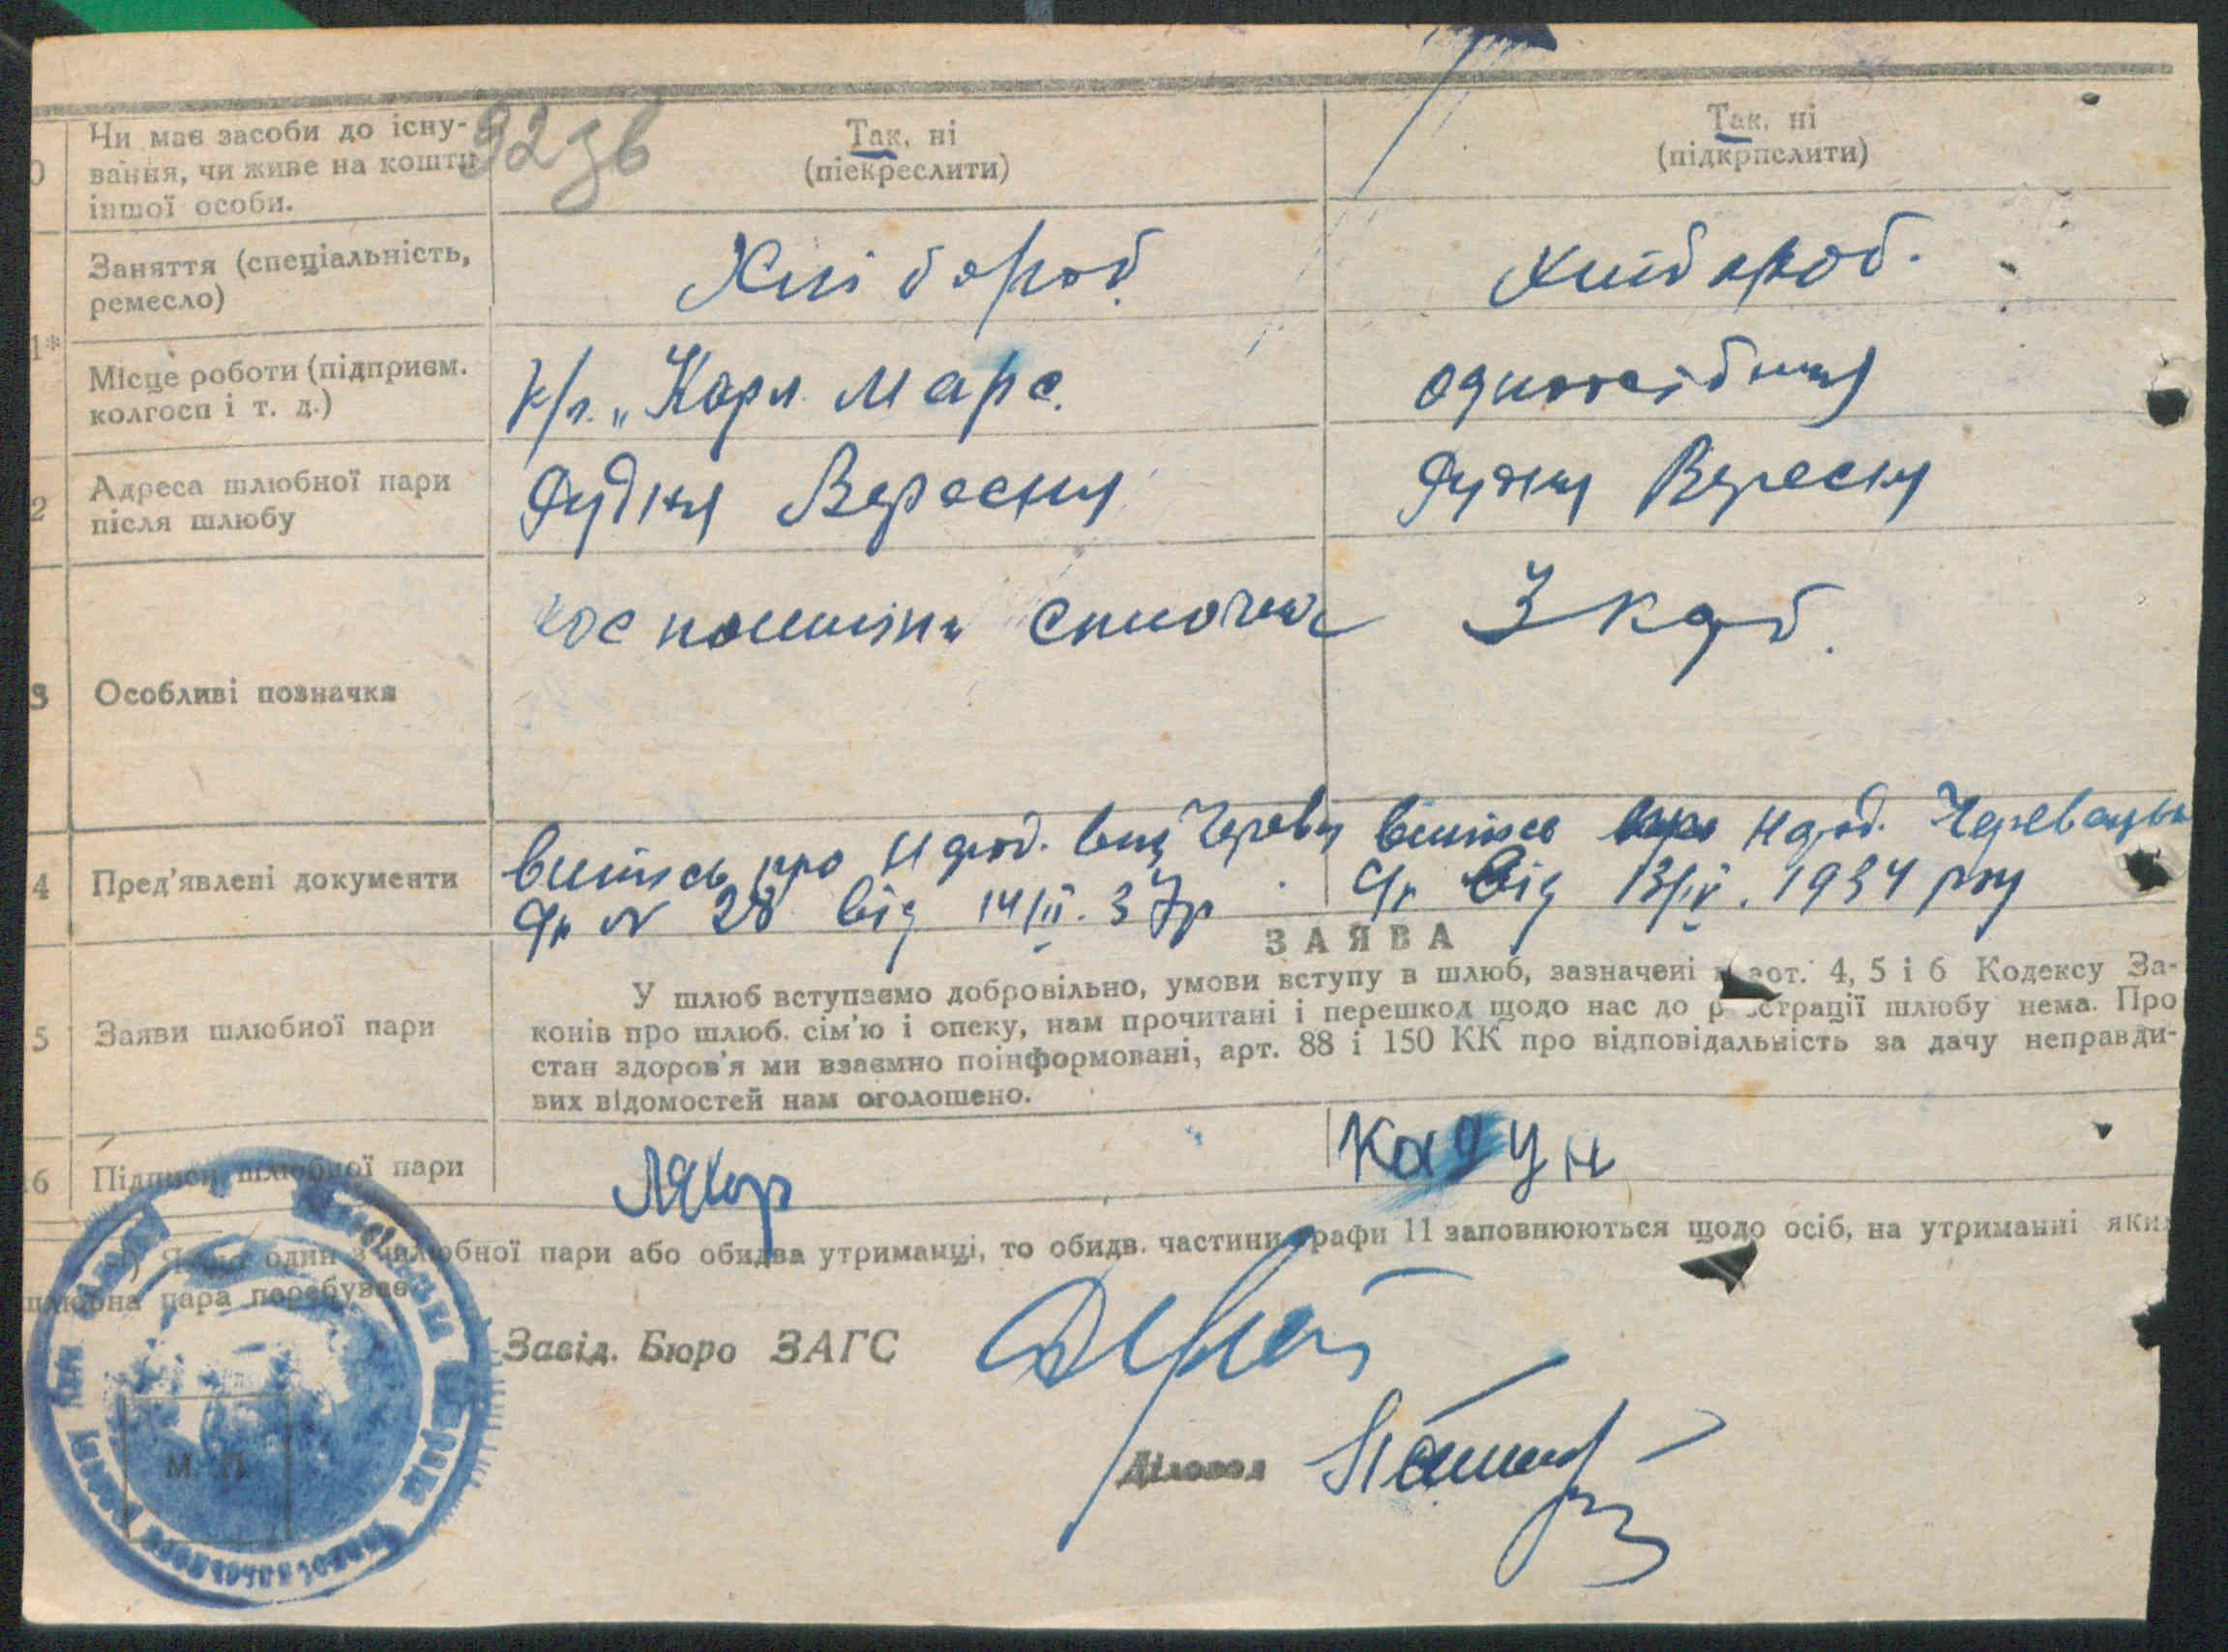 92 зв
Чи має засоби до існу-
вання, чи живе на кошти
іншої особи.
Так, ні
(піекреслити)
Так, ні
(підкрпслити)
Заняття (спеціальність,
ремесло)
Хлібороб
хлібороб.
1*
Місце роботи (підприєм.
колгосп і т. д.)
к/г. „Карл Марс.
одноосібниця
2
Адреса шлюбної пари
після шлюбу
Рудня Вересня
Рудня Вересня
3
Особливі позначки
сплочена
3 карб.
4
Пред'явлені документи
витись про народ. вид Черев
витись про народ. Череваць
с/р № 28 від 14/II. 37р
с/р від 13/IV. 1934 року
ЗАЯВА
5
Заяви шлюбної пари
У шлюб вступаємо добровільно, умови вступу в шлюб, зазначені в арт. 4, 5 і 6 Кодексу За-
конів про шлюб. сім'ю і опеку, нам прочитані і перешкод щодо нас до реєстрації шлюбу нема. Про
стан здоров'я ми взаємно поінформовані, арт. 88 і 150 КК про відповідальність за дачу неправди-
вих відомостей нам оголошено.
6
Підписи шлюбної пари
Ляхор
Кадун
*) Якщо один з шлюбної пари або обидва утриманці, то обидв. частини графи 11 заповнюються щодо осіб, на утриманні яких
шлюбна пара перебуває
Завід. Бюро ЗАГС
Діловод
М. П.